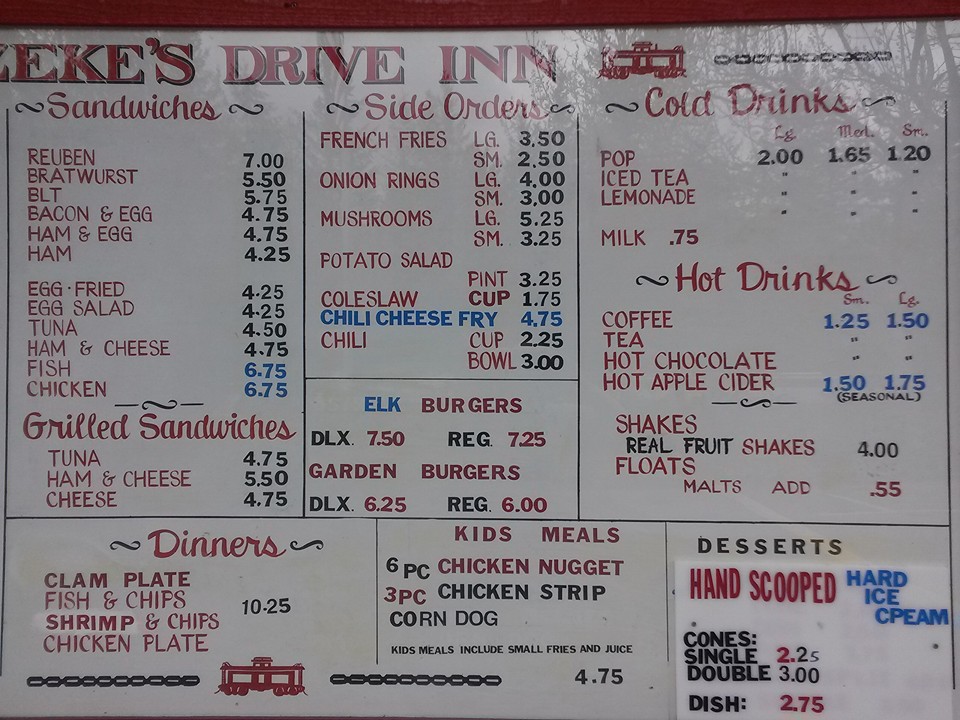 ZEKE'S DRIVE INN
Sandwiches
REUBEN 7.00
BRATWURST 5.50
BLT 5.75
BACON & EGG 4.75
HAM & EGG 4.75
HAM 4.25
EGG·FRIED 4.25
EGG SALAD 4.25
TUNA 4.50
HAM & CHEESE 4.75
FISH 6.75
CHICKEN 6.75
Grilled Sandwiches
TUNA 4.75
HAM & CHEESE 5.50
CHEESE 4.75
Side Orders
FRENCH FRIES LG. 3.50
SM. 2.50
ONION RINGS LG. 4.00
SM. 3.00
MUSHROOMS LG. 5.25
SM. 3.25
POTATO SALAD
PINT 3.25
COLESLAW CUP 1.75
CHILI CHEESE FRY 4.75
CHILI CUP 2.25
BOWL 3.00
ELK BURGERS
DLX. 7.50 REG. 7.25
GARDEN BURGERS
DLX. 6.25 REG. 6.00
Cold Drinks
Lg. Med. Sm.
POP 2.00 1.65 1.20
ICED TEA " " "
LEMONADE " " "
MILK .75
Hot Drinks
Sm. Lg.
COFFEE 1.25 1.50
TEA " "
HOT CHOCOLATE " "
HOT APPLE CIDER 1.50 1.75
(SEASONAL)
SHAKES
REAL FRUIT SHAKES 4.00
FLOATS
MALTS ADD .55
Dinners
CLAM PLATE
FISH & CHIPS 10.25
SHRIMP & CHIPS
CHICKEN PLATE
KIDS MEALS
6 PC CHICKEN NUGGET
3PC CHICKEN STRIP
CORN DOG
KIDS MEALS INCLUDE SMALL FRIES AND JUICE
4.75
DESSERTS
HAND SCOOPED HARD
ICE
CPEAM
CONES:
SINGLE 2.25
DOUBLE 3.00
DISH: 2.75